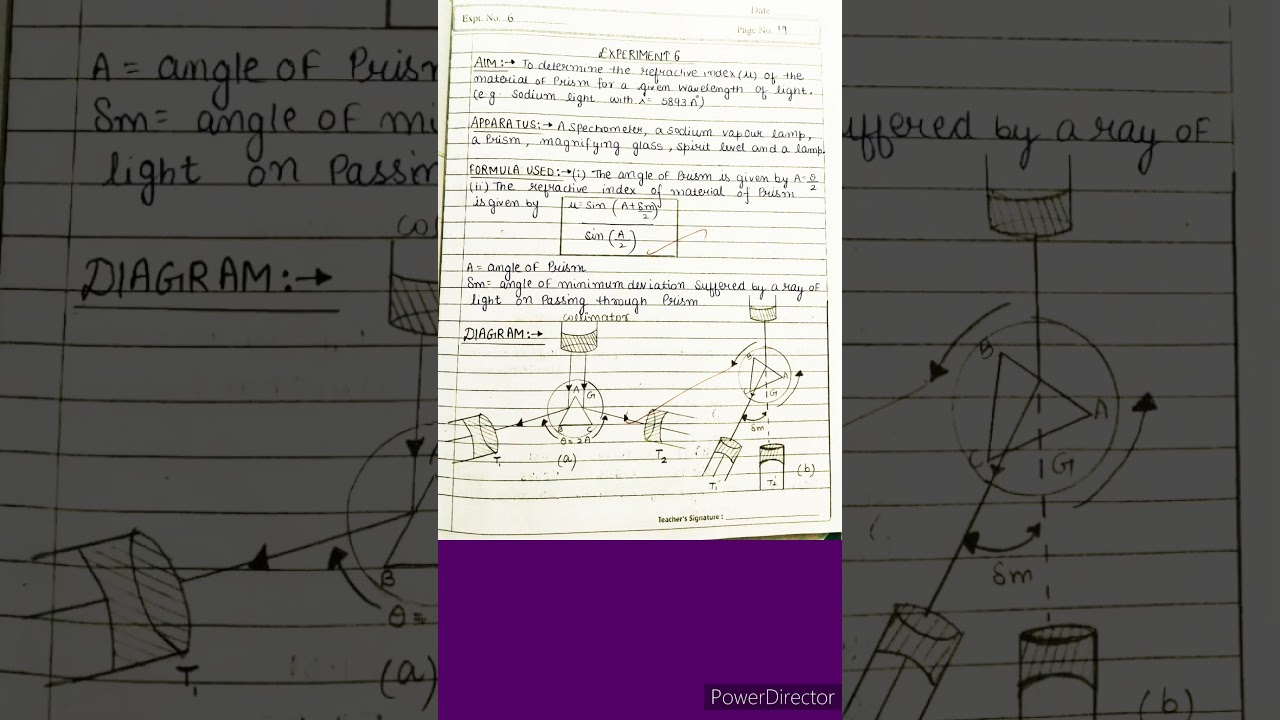 Date
Expt. No. 6
Page No. 19
EXPERIMENT 6
AIM:→ To determine the refractive index (μ) of the
material of Prism for a given wavelength of light.
(e.g. Sodium light with λ= 5893A°)
APPARATUS:→ A Spechometer, a sodium vapour lamp,
a Prism, magnifying glass, spirit level and a lamp.
FORMULA USED:→(i) The angle of Prism is given by A=θ/2
(ii) The refractive index of material of Prism
is given by μ= sin (A+δm/2)
sin (A/2)
A= angle of Prism
δm= angle of minimum deviation Suffered by a ray of
light on Passing through Prism
collimator
DIAGRAM:→
A
G
B
C
θ = 2A
T1
(a)
T2
B
A
C
G
δm
T1
T2
(b)
Teacher's Signature :
A = angle of Prism
Sm= angle of mi
suffered by a ray of
light on Passin
co
DIAGRAM:→
B
θ =
T1
(a)
B
A
C
G
δm
(b)
PowerDirector